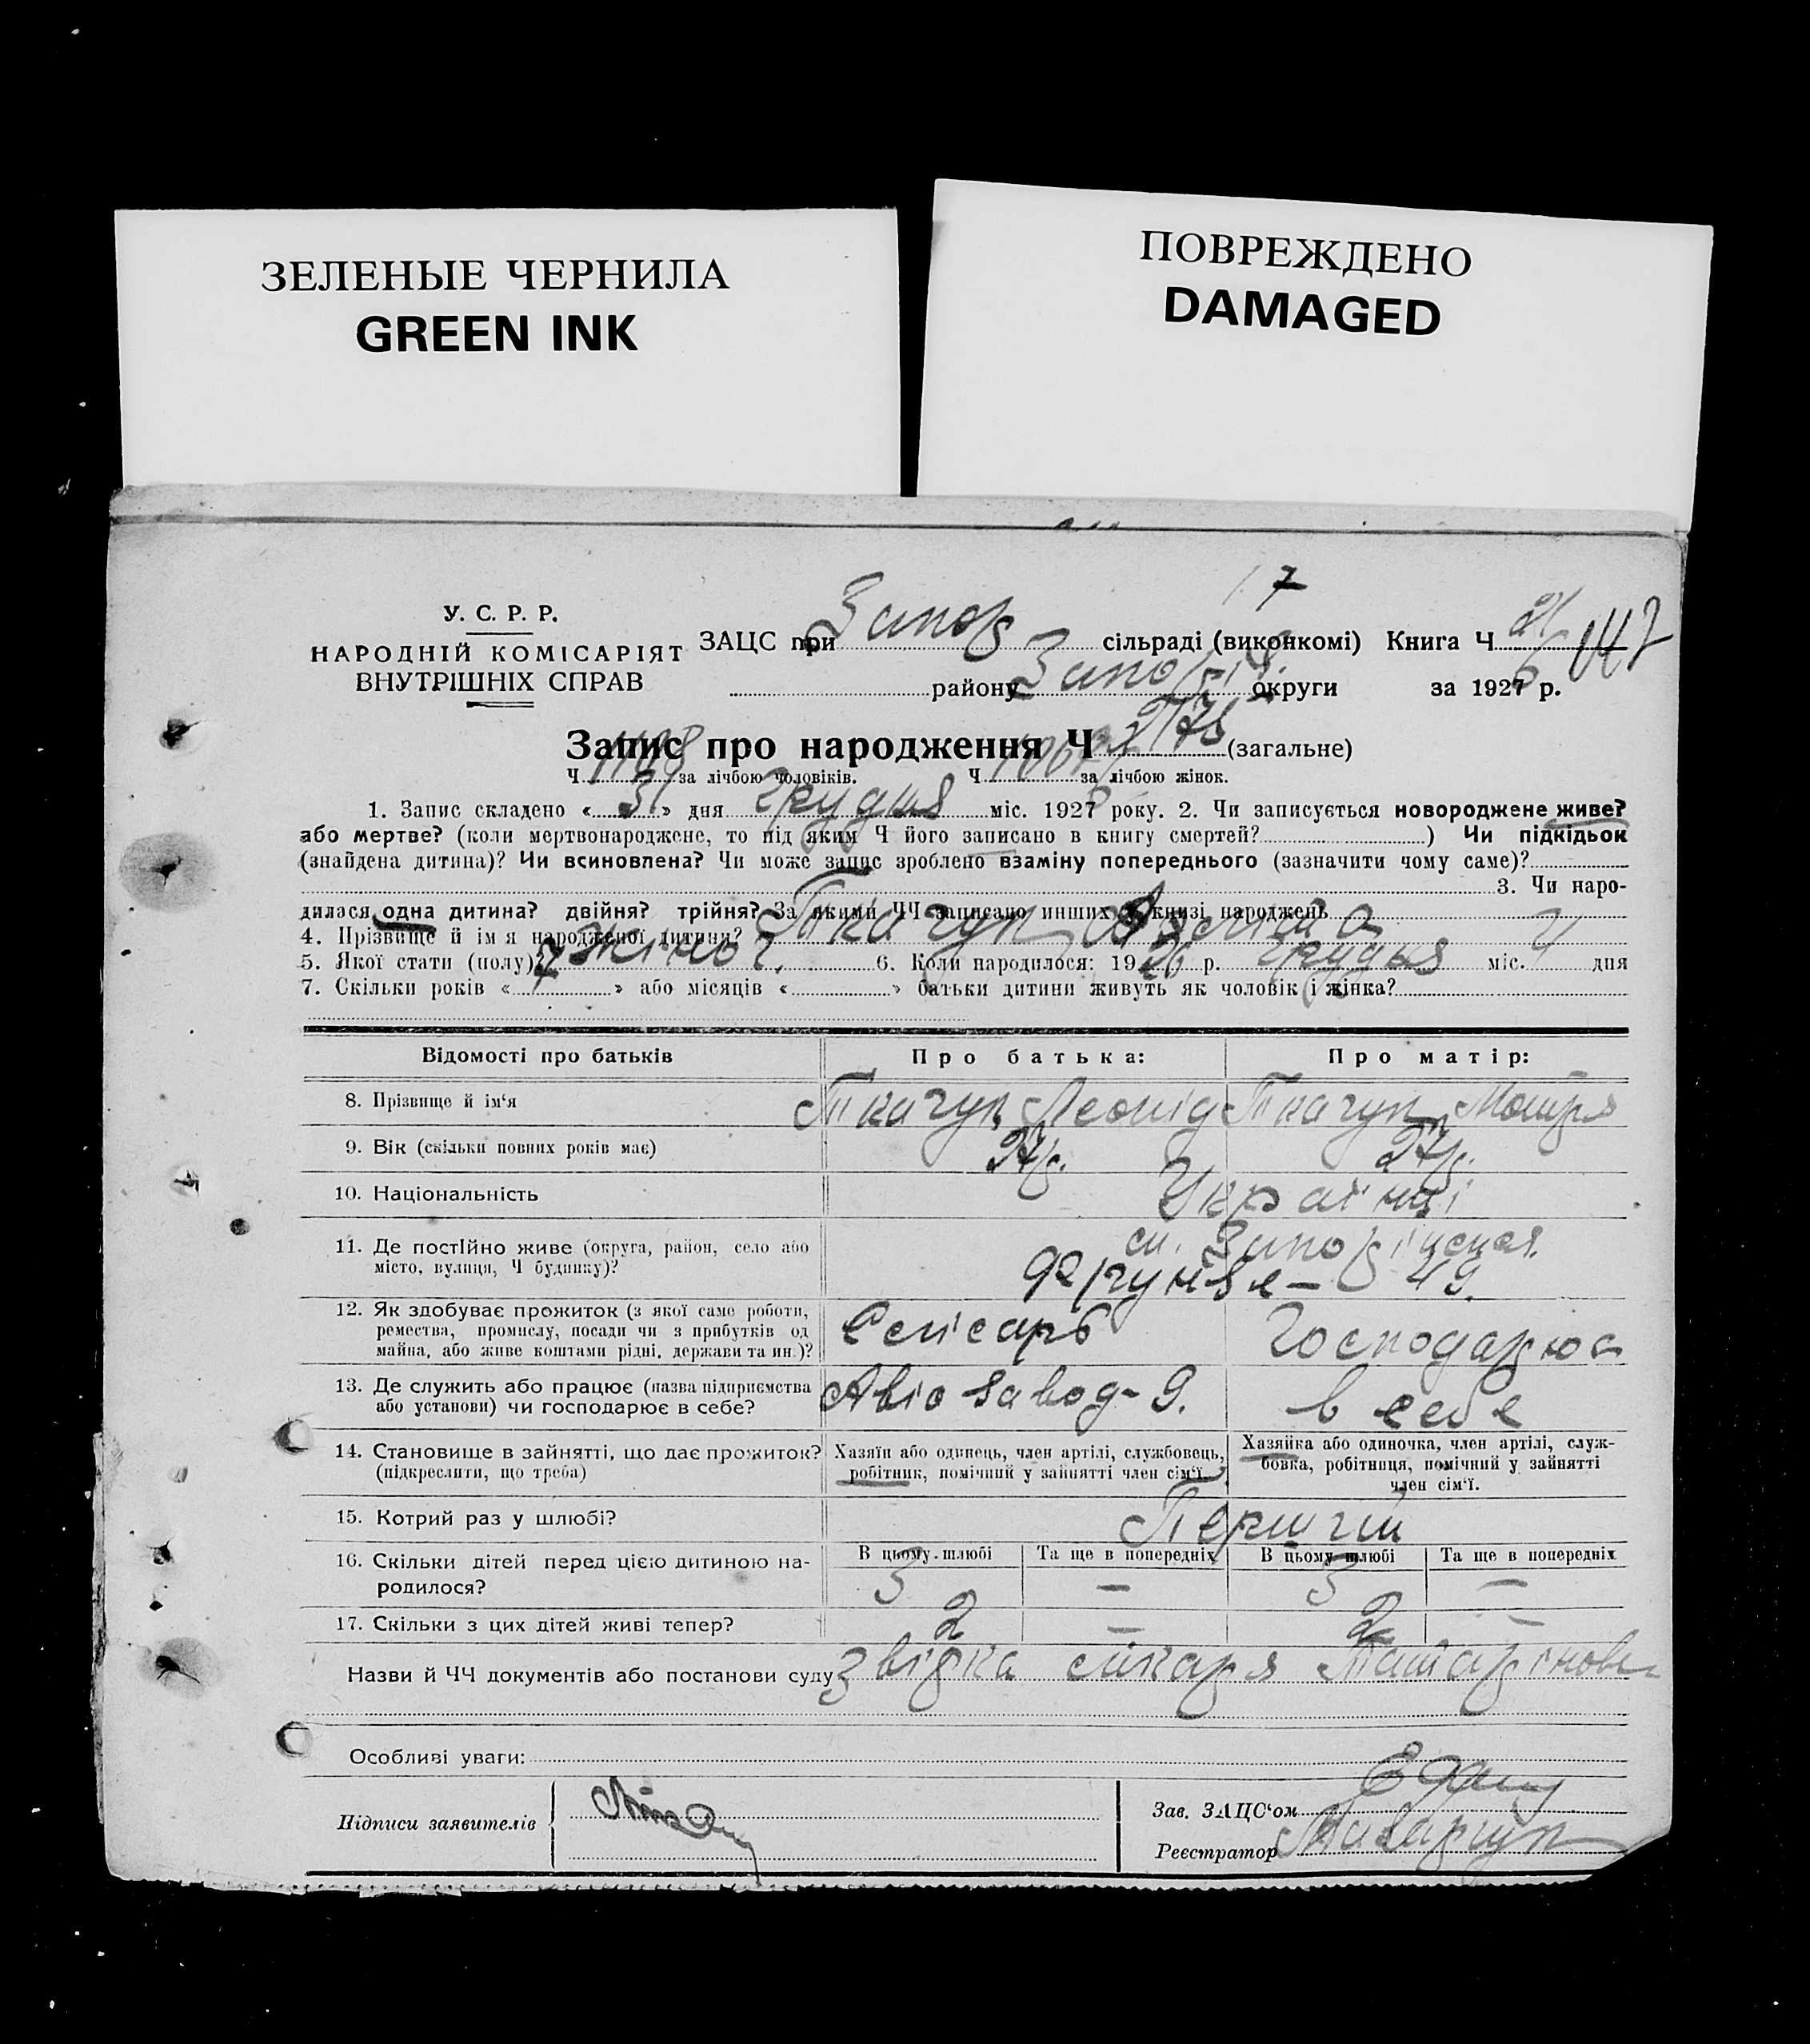 ЗЕЛЕНЫЕ ЧЕРНИЛА
GREEN INK
ПОВРЕЖДЕНО
DAMAGED
У. С. Р. Р.
НАРОДНІЙ КОМІСАРІЯТ
ВНУТРІШНІХ СПРАВ
17
ЗАЦС при Запор сільраді (виконкомі) Книга Ч 21 147
району Запор округи за 1926 р.
Запис про народження Ч 2178 (загальне)
Ч 1108 за лічбою чоловіків. Ч за лічбою жінок.
1. Запис складено « 31 » дня Грудня міс. 1926 року. 2. Чи записується новороджене живе?
або мертве? (коли мертвонароджене, то під яким Ч його записано в книгу смертей? ) Чи підкідьок
(знайдена дитина)? Чи всиновлена? Чи може запис зроблено взаміну попереднього (зазначити чому саме)?
3. Чи наро-
дилася одна дитина? двійня? трійня? За якими ЧЧ записано инших в книзі народжень
4. Прізвище й ім'я народженої дитини? Ткачук
5. Якої стати (полу)? жіноч. 6. Коли народилося: 1926 р. Грудня міс. 4 дня
7. Скільки років « 7 » або місяців « » батьки дитини живуть як чоловік і жінка?
Відомості про батьків Про батька: Про матір:
8. Прізвище й ім'я Ткачук Леонід Ткачук Мотря
9. Вік (скільки повних років має) 27 р. 27 р.
10. Національність Українці
11. Де постійно живе (округа, район, село або
місто, вулиця, Ч будинку)? 49.
12. Як здобуває прожиток (з якої саме роботи,
ремества, промислу, посади чи з прибутків од
майна, або живе коштами рідні, держави та ин.)? Слісарь Господарює
13. Де служить або працює (назва підприємства
або установи) чи господарює в себе? Авіо завод-9. в себе
14. Становище в зайнятті, що дає прожиток?
(підкреслити, що треба)
Хазяїн або одинець, член артілі, службовець,
робітник, помічний у зайнятті член сім'ї.
Хазяйка або одиночка, член артілі, служ-
бовка, робітниця, помічний у зайнятті
член сім'ї.
15. Котрий раз у шлюбі? Перший
16. Скільки дітей перед цією дитиною на-
родилося?
В цьому шлюбі Та ще в попередніх В цьому шлюбі Та ще в попередніх
3 — 3 —
17. Скільки з цих дітей живі тепер? 2 — 2 —
Назви й ЧЧ документів або постанови суду Звідка лікаря
Особливі уваги:
Підписи заявителів
Зав. ЗАЦС'ом
Реєстратор